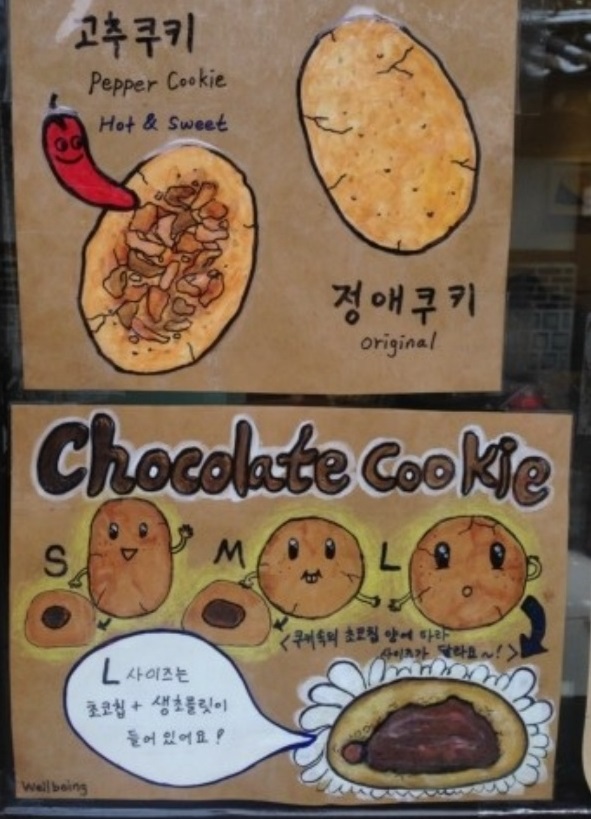 고추쿠키
Pepper Cookie
Hot & Sweet
정애쿠키
original
Chocolate Cookie
S M L
<쿠키속의 초코칩 양에 따라
사이즈가 달라요~!>
L 사이즈는
초코칩 + 생초콜릿이
들어 있어요!
Wellbeing